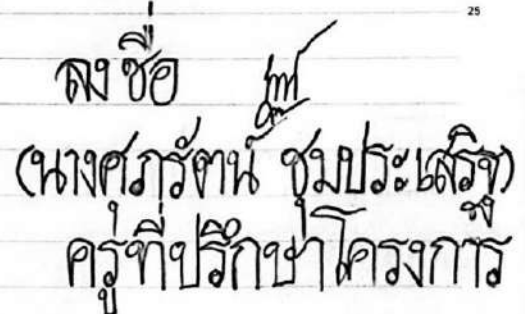 25
ลงชื่อ
(นางศุภรัตน์ ชุมประเสริฐ)
ครูที่ปรึกษาโครงการ